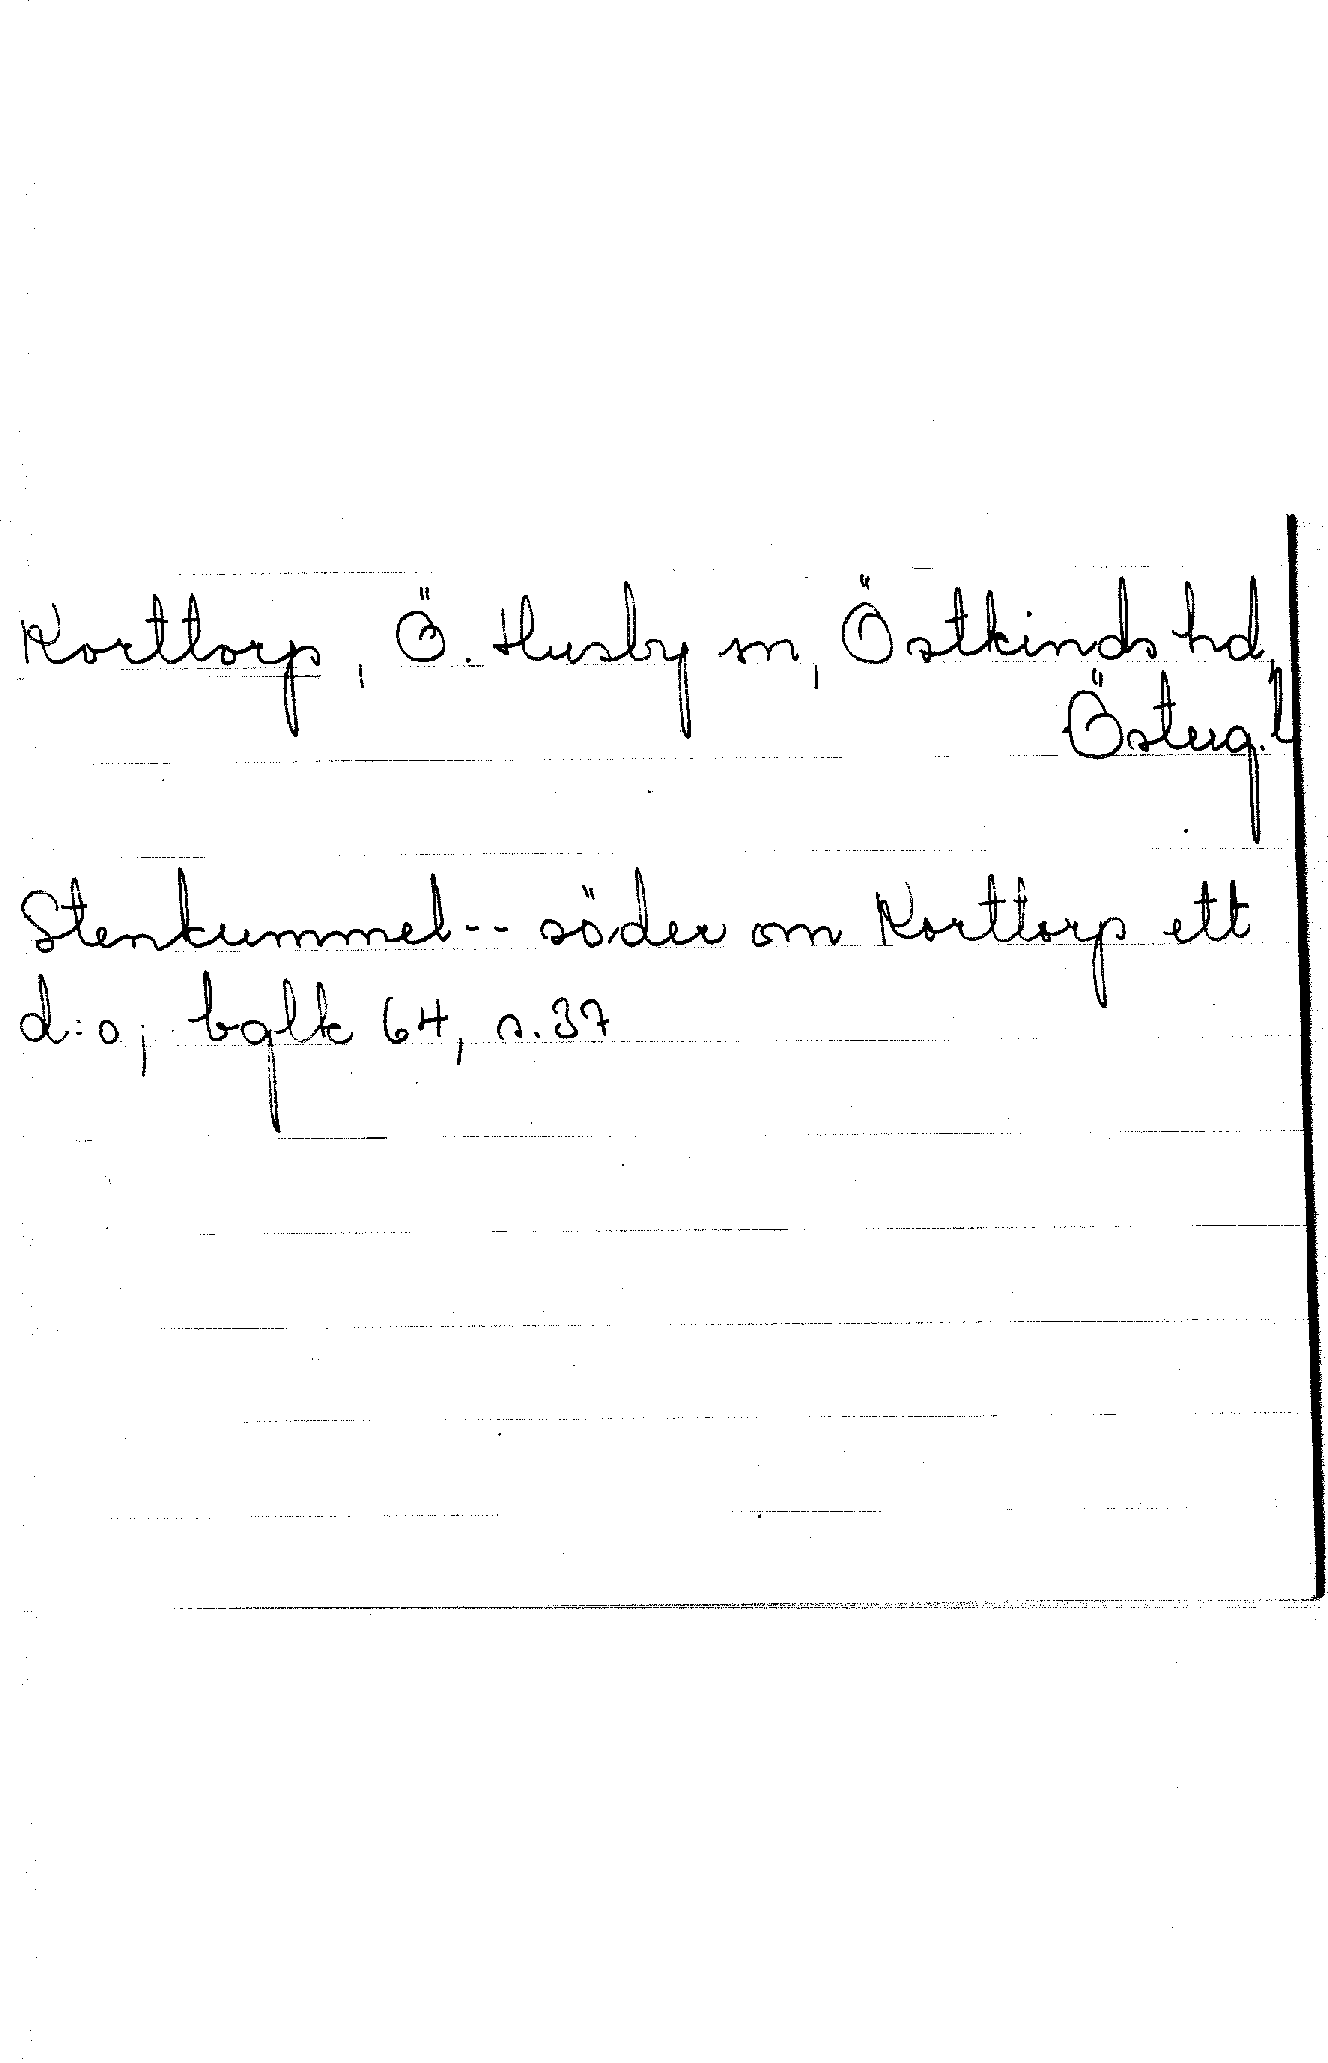 Korttorp, Ö. Husby sn, Östkinds hd,
Österg. l
Stenkummel -- söder om Korttorp ett
d:o; bglk 64, s. 37